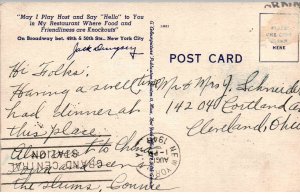 "May I Play Host and Say "Hello" to You
in My Restaurant Where Food and
Friendliness are Knockouts"
On Broadway bet. 49th & 50th Sts., New York City
Jack Dempsey
POST CARD
Hi Folks.
Having a swell time
had dinner at
this place.
Also went to China
the slums. Connie
Mr & Mrs J. Schneider
14204 Cortland
Cleveland, Ohio
NEW YORK
AUG
GRAND CENTRAL
STATION